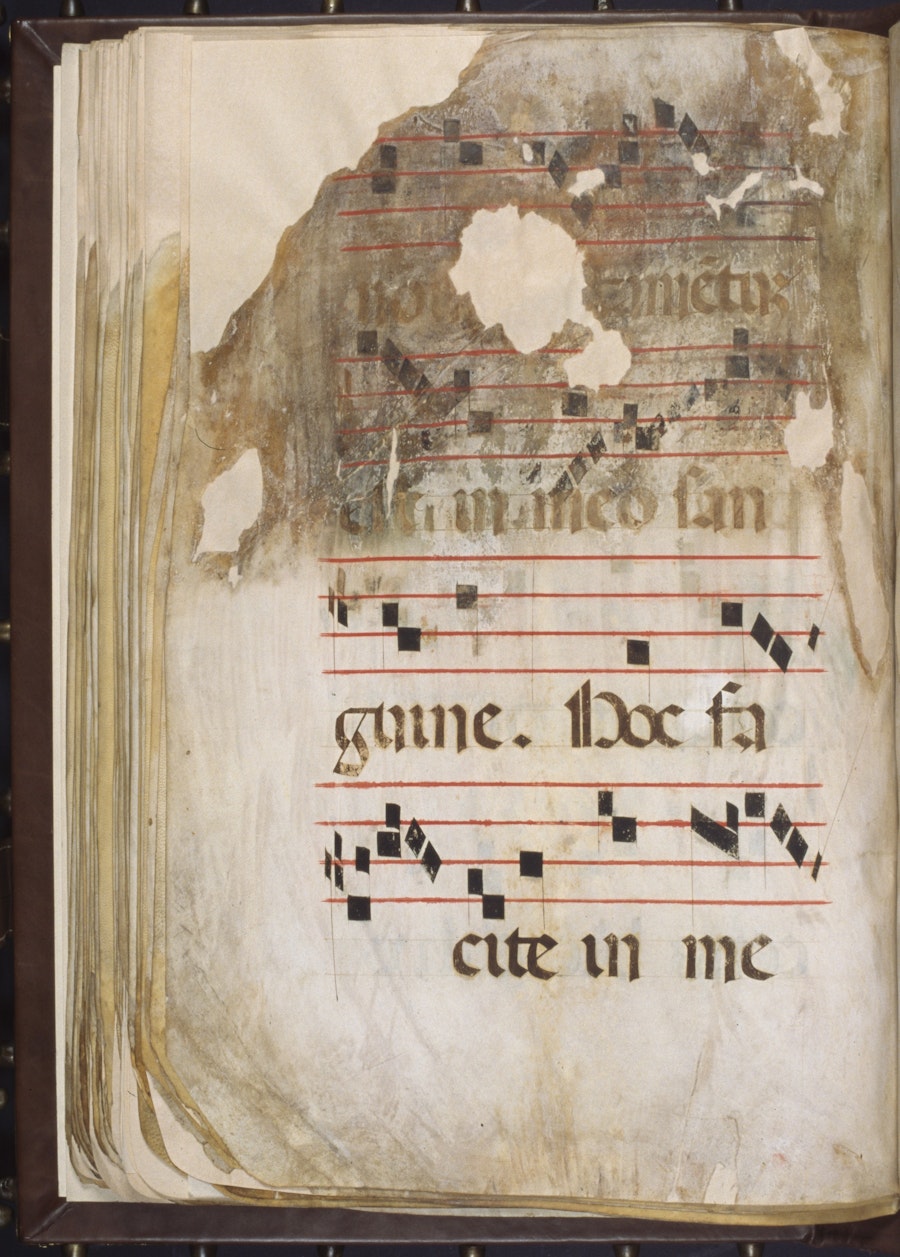 est in meo san
guine. Hoc fa
cite in me